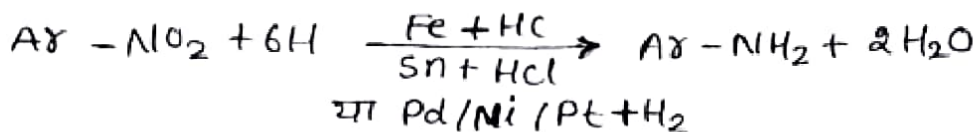 Ar - NO2 + 6H \xrightarrow[Sn + HCl]{Fe + HC} Ar - NH2 + 2H2O
या Pd/Ni/Pt + H2